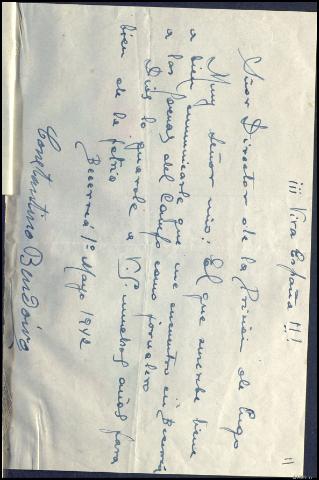 ¡¡¡ Viva España !!!
Señor Director de la Prisión de Lugo
Muy Señor mio: El que suscribe tiene
a bien comunicarle que me encuentro en Becerreá
a las faenas del Campo como jornalero
Dios le guarde a V.S. muchos años para
bien de la patria
Becerreá 1º Mayo 1942
Constantino
11